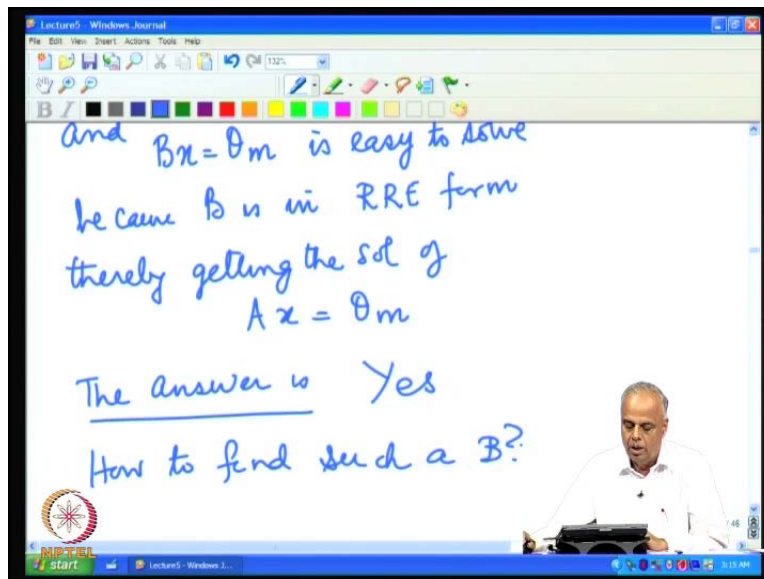 Lecture5 - Windows Journal
File Edit View Insert Actions Tools Help
132%
B I
and Bx = θm is easy to solve
because B is in RRE form
thereby getting the sol of
Ax = θm
The answer is Yes
How to find such a B?
/ 46
NPTEL
start Lecture5 - Windows J... 3:15 AM